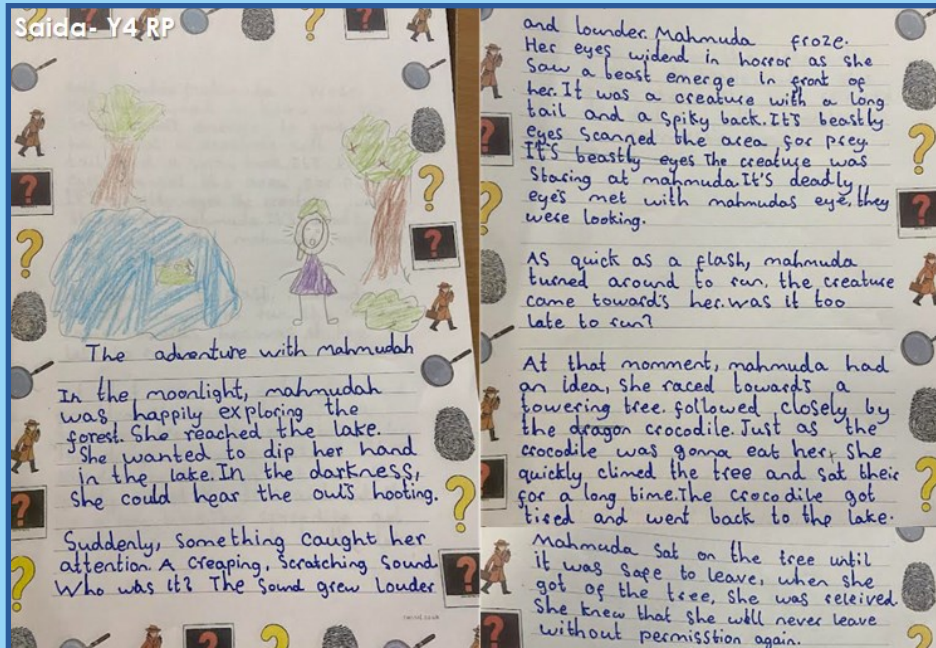 Saida- Y4 RP
The adventure with mahmudah
In the moonlight, mahmudah
was happily exploring the
forest. She reached the lake.
She wanted to dip her hand
in the lake. In the darkness,
she could hear the owl's hooting.
Suddenly, something caught her
attention. A creaping, scratching sound.
Who was it? The sound grew louder
and lounder. Mahmuda froze.
Her eyes widend in horror as she
saw a beast emerge in front of
her. It was a creature with a long
tail and a spiky back. It's beastly
eyes scanned the area for prey.
It's beastly eyes The creature was
staring at mahmuda. It's deadly
eye's met with mahmudas eye, they
were looking.
As quick as a flash, mahmuda
turned around to run, the creature
came toward's her. was it too
late to run?
At that momment, mahmuda had
an idea, she raced toward's a
towering tree. followed closely by
the dragon crocodile. Just as the
crocodile was gonna eat her, she
quickly climed the tree and sat their
for a long time. The crocodile got
tired and went back to the lake.
Mahmuda sat on the tree until
it was safe to leave, when she
got of the tree, she was releived.
She knew that she will never leave
without permisstion again.